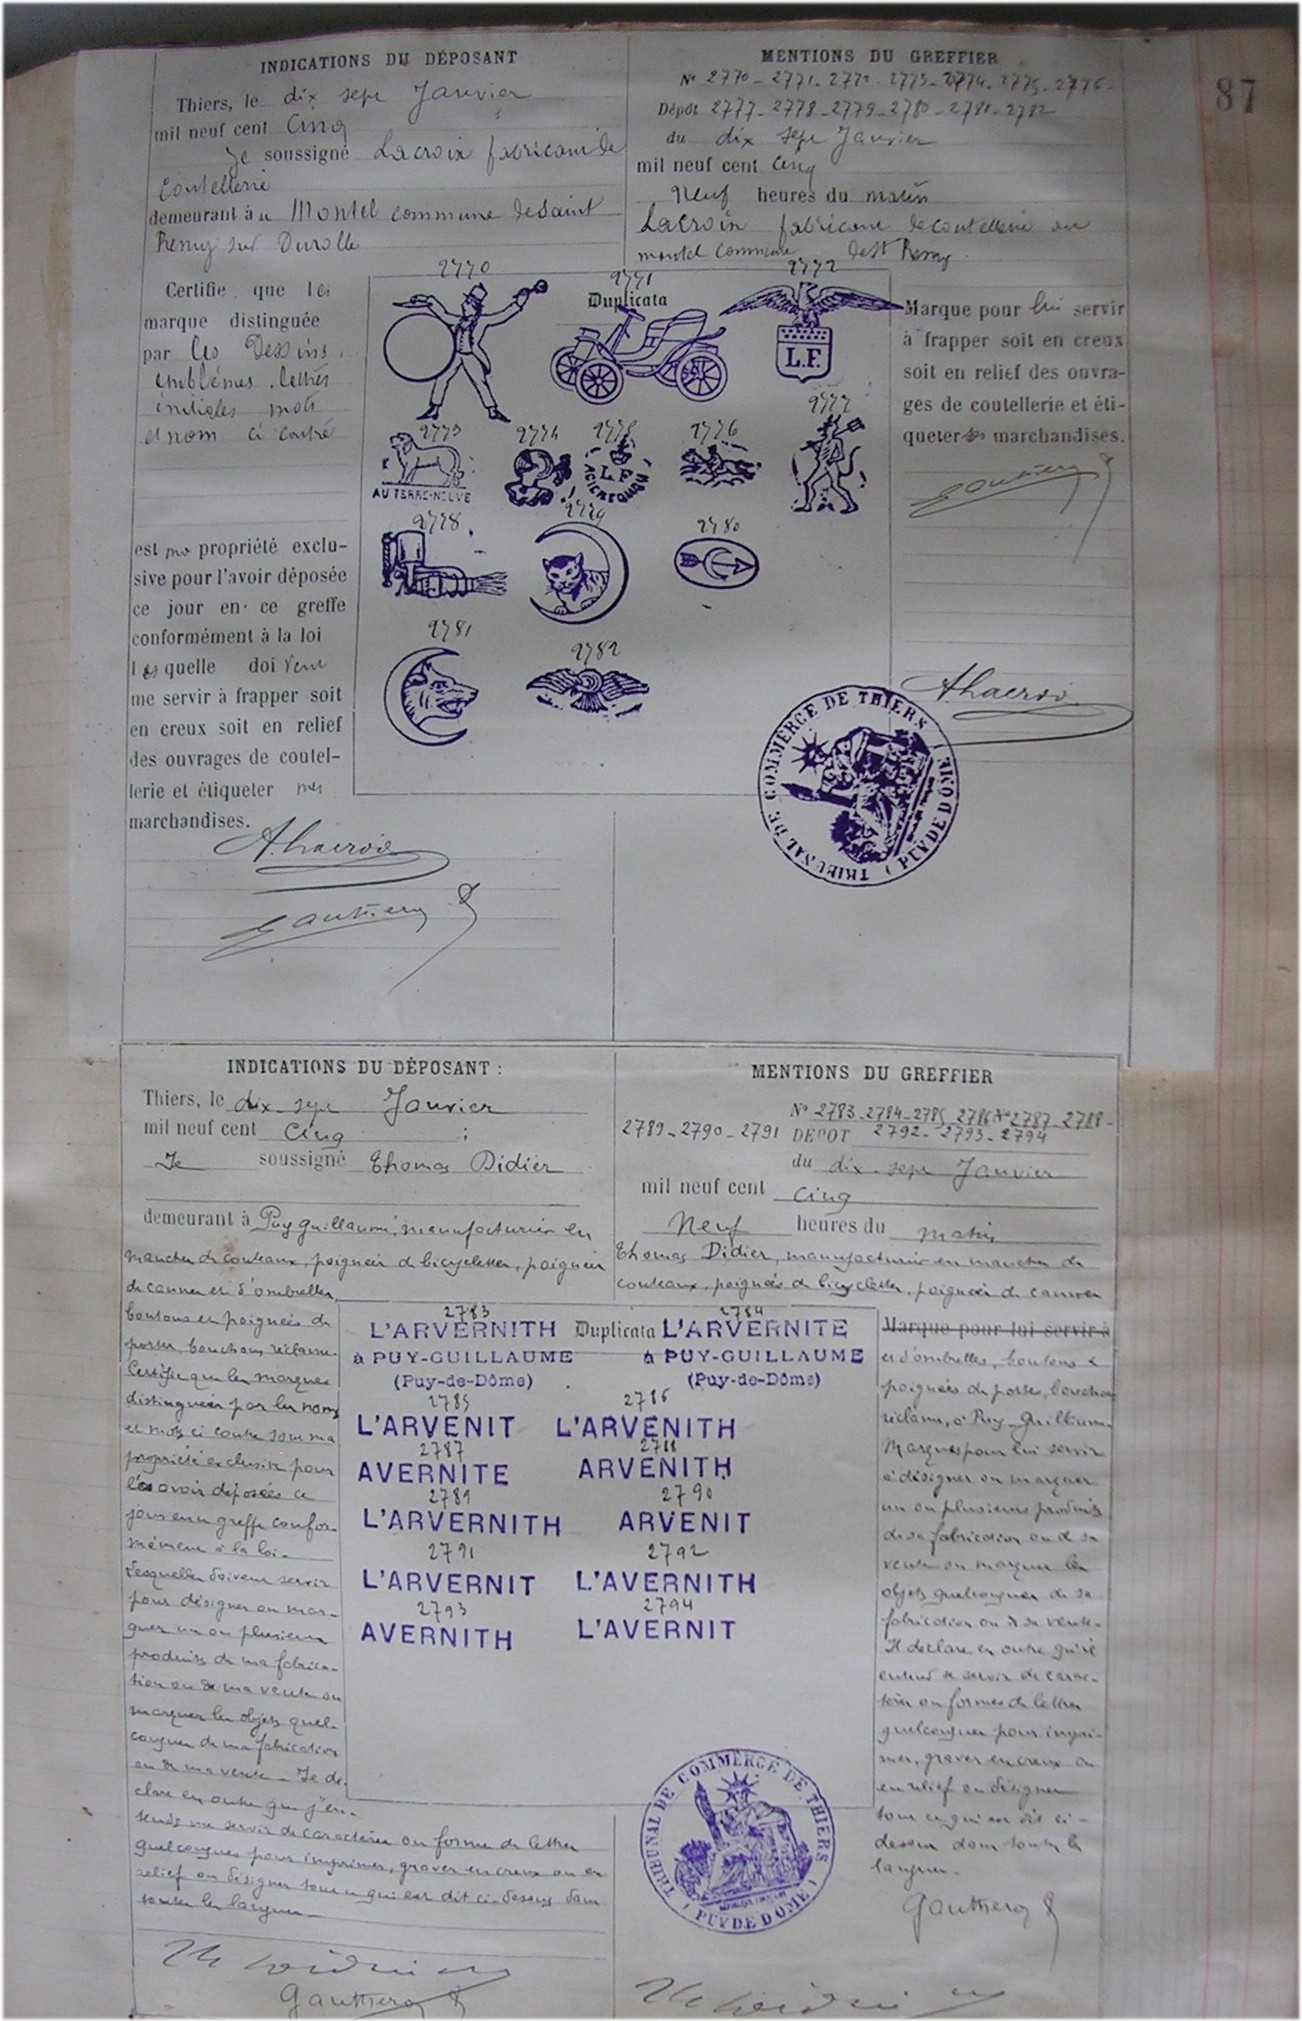 87
INDICATIONS DU DÉPOSANT
Thiers, le dix sept Janvier
mil neuf cent Cinq
Je soussigné Lacroix fabricant de
Coutellerie
demeurant à u Montel commune de Saint
Remy sur Durolle
Certifie que les
marque distinguée
par les Dessins,
emblèmes, lettres
initiales mots
et nom ci contre
est ma propriété exclu-
sive pour l'avoir déposée
ce jour en ce greffe
conformément à la loi
lesquelle doivent
me servir à frapper soit
en creux soit en relief
des ouvrages de coutel-
lerie et étiqueter mes
marchandises.
A. Lacroix
Gauthier
MENTIONS DU GREFFIER
Nº 2770 - 2771 - 2772 - 2773 - 2774 - 2775 - 2776 -
Dépôt 2777 - 2778 - 2779 - 2780 - 2781 - 2782
du dix sept Janvier
mil neuf cent Cinq
Neuf heures du matin
Lacroix fabricant de coutellerie au
montel commune de St Remy
2770
2771
Duplicata
2772
L.F.
2773
AU TERRE-NEUVE
2774
2775
L.F
2776
2777
2778
2779
2780
2781
2782
Marque pour lui servir
à frapper soit en creux
soit en relief des ouvra-
ges de coutellerie et éti-
queter ses marchandises.
Gauthier
A. Lacroix
TRIBUNAL DE COMMERCE DE THIERS
( PUY DE DOME )
INDICATIONS DU DÉPOSANT :
Thiers, le dix sept Janvier
mil neuf cent Cinq ;
Je soussigné Thomas Didier
demeurant à Puy Guillaume, manufacturier en
manches de couteaux, poignées de bicyclettes, poignées
de cannes et d'ombrelles,
boutons et poignées de
portes, bouchons réclame.
Certifie que les marques
distinguées par les noms
et mots ci contre sont ma
propriété exclusive pour
les avoir déposées ce
jour en ce greffe confor-
mément à la loi.
Lesquelles doivent servir
pour désigner ou mar-
quer un ou plusieurs
produits de ma fabrica-
tion ou de ma vente ou
marquer les objets quel-
conques de ma fabrication
ou de ma vente. Je dé-
clare en outre que j'en-
tends me servir de caractères ou forme de lettres
quelconques pour imprimer, graver en creux ou en
relief ou désigner tout ce qui est dit ci-dessus dans
toutes les langues.
Gauthier
MENTIONS DU GREFFIER
Nº 2783 - 2784 - 2785 - 2786 Nº 2787 - 2788 -
2789 - 2790 - 2791 DÉPOT 2792 - 2793 - 2794
du dix sept Janvier
mil neuf cent Cinq
Neuf heures du matin
Thomas Didier, manufacturier en manches de
couteaux, poignées de bicyclettes, poignées de cannes
2783
L'ARVERNITH
à PUY-GUILLAUME
(Puy-de-Dôme)
Duplicata
2784
L'ARVERNITE
à PUY-GUILLAUME
(Puy-de-Dôme)
2785 2786
L'ARVENIT L'ARVENITH
2787 2788
AVERNITE ARVENITH
2789 2790
L'ARVERNITH ARVENIT
2791 2792
L'ARVERNIT L'AVERNITH
2793 2794
AVERNITH L'AVERNIT
Marque pour lui servir à
et d'ombrelles, boutons &
poignées de portes, bouchons
réclame, à Puy-Guillaume
Marques pour lui servir
à désigner ou marquer
un ou plusieurs produits
de sa fabrication ou de sa
vente ou marquer les
objets quelconques de sa
fabrication ou de sa vente.
Il déclare en outre qu'il
entend se servir de carac-
tères ou formes de lettres
quelconques pour impri-
mer, graver en creux ou
en relief ou désigner
tout ce qui est dit ci-
dessus dans toutes les
langues.
Gauthier
TRIBUNAL DE COMMERCE DE THIERS
( PUY DE DOME )